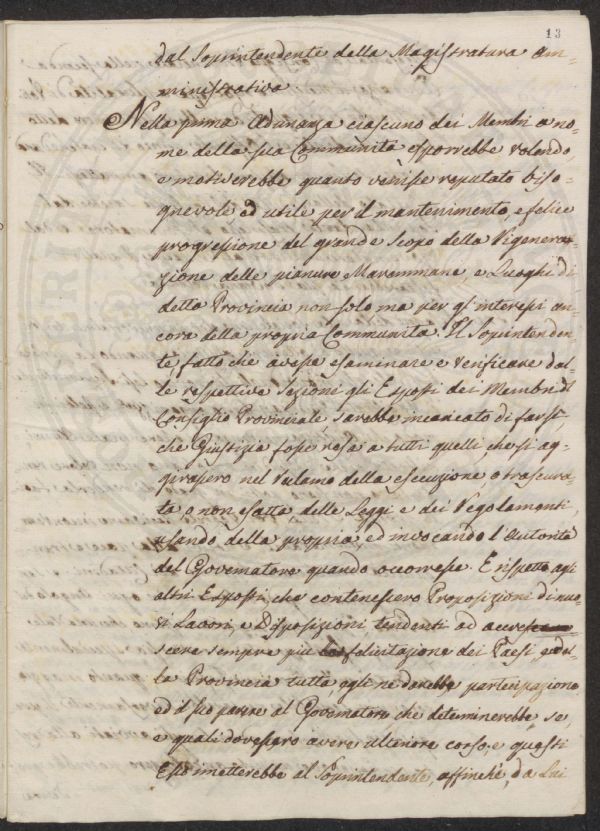 13
dal Soprintendente della Magistratura am=
ministrativa
Nella prima Adunanza ciascuno dei Membri a no=
me della sua Communità esporrebbe volendo,
e motiverebbe quanto venisse reputato biso=
gnevole ed utile per il mantenimento, e felice
progressione del grande Scopo della Rigenera=
zione delle pianure Maremmane, e Luoghi di
detta Provincia non solo ma per gl'interessi an=
cora della propria Communità. Il Soprintenden=
te, fatto che avesse esaminare e verificare dal=
le respettive Sezioni gli Esposti dei Membri del
Consiglio Provinciale, sarebbe incaricato di farsi,
che Giustizia fosse resa a tutti quelli che si ag=
girassero nel reclamo della esecuzione, o trascura=
ta, o non esatta, delle Leggi e dei Regolamenti,
usando della propria, ed invocando l'Autorità
del Governatore quando occorresse. E rispetto agli
altri Esposti, che contenessero Proposizioni di nuo=
vi Lavori, e Disposizioni tendenti ad accre
scere sempre più felicitazione dei Paesi, e del=
la Provincia tutta egli ne darebbe partecipazione
ed il suo parere al Governatore che determinerebbe, se
e quali dovessero avere ulteriore corso, e questi
Esso rimetterebbe al Soprintendente, affinchè, da Lui